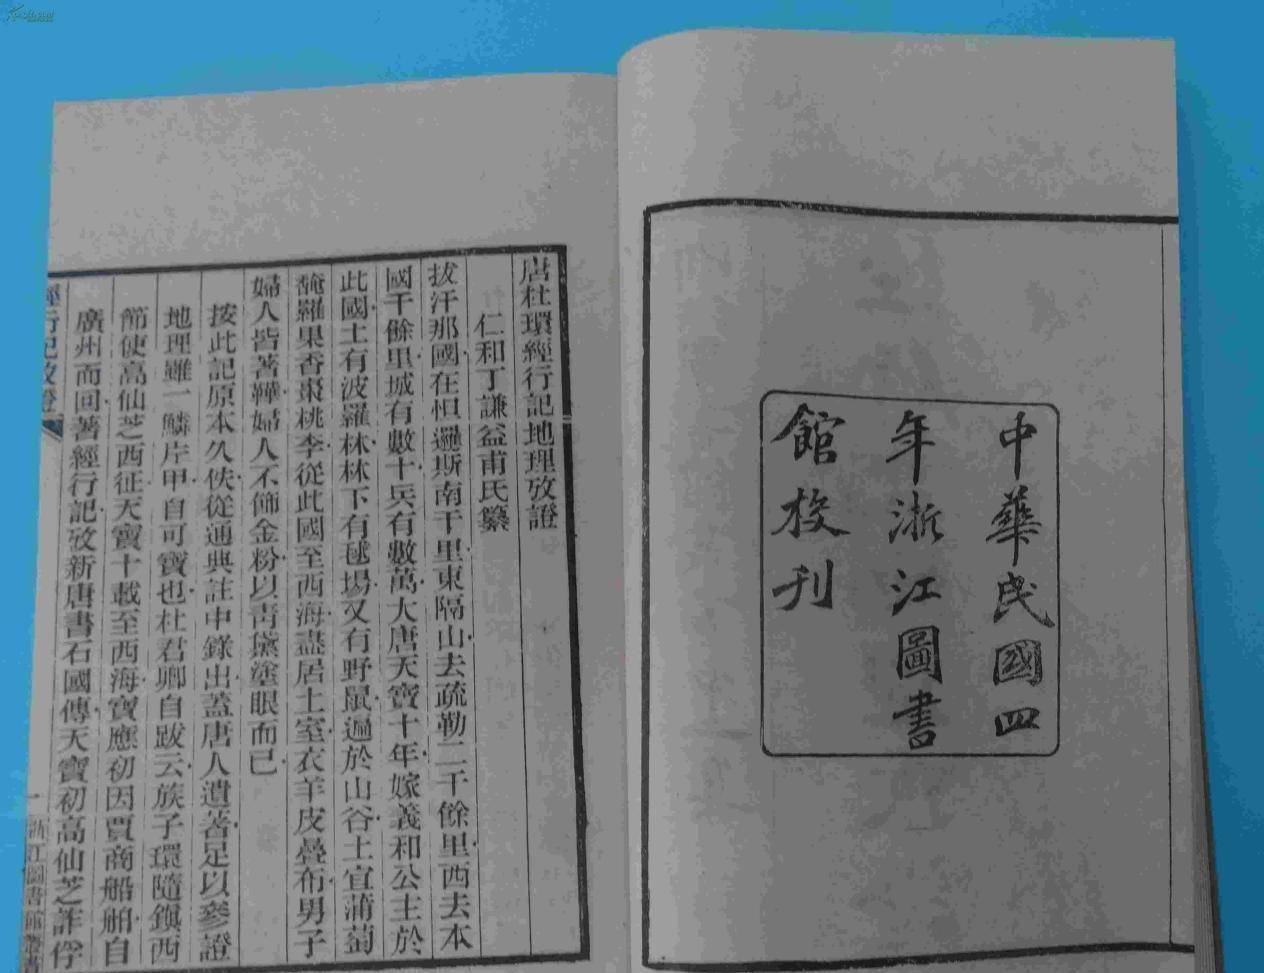 中華民國四
年浙江圖書
館校刊
唐杜環經行記地理攷證
仁和丁謙益甫氏纂
拔汗那國在怛邏斯南千里東隔山去疏勒二千餘里西去本
國千餘里城有數十兵有數萬大唐天寶十年嫁義和公主於
此國土有波羅林林下有毬場又有野鼠遍於山谷土宜蒲萄
馣羅果香棗桃李從此國至西海盡居土室衣羊皮疊布男子
婦人皆著鞾婦人不飾金粉以青黛塗眼而已
按此記原本久佚從通典註中錄出蓋唐人遺著足以參證
地理雖一鱗片甲自可寶也杜君卿自跋云族子環隨鎮西
節使高仙芝西征天寶十載至西海寶應初因賈商船舶自
廣州而回著經行記攷新唐書石國傳天寶初高仙芝詐俘
經行記攷證
一
浙江圖書館叢書